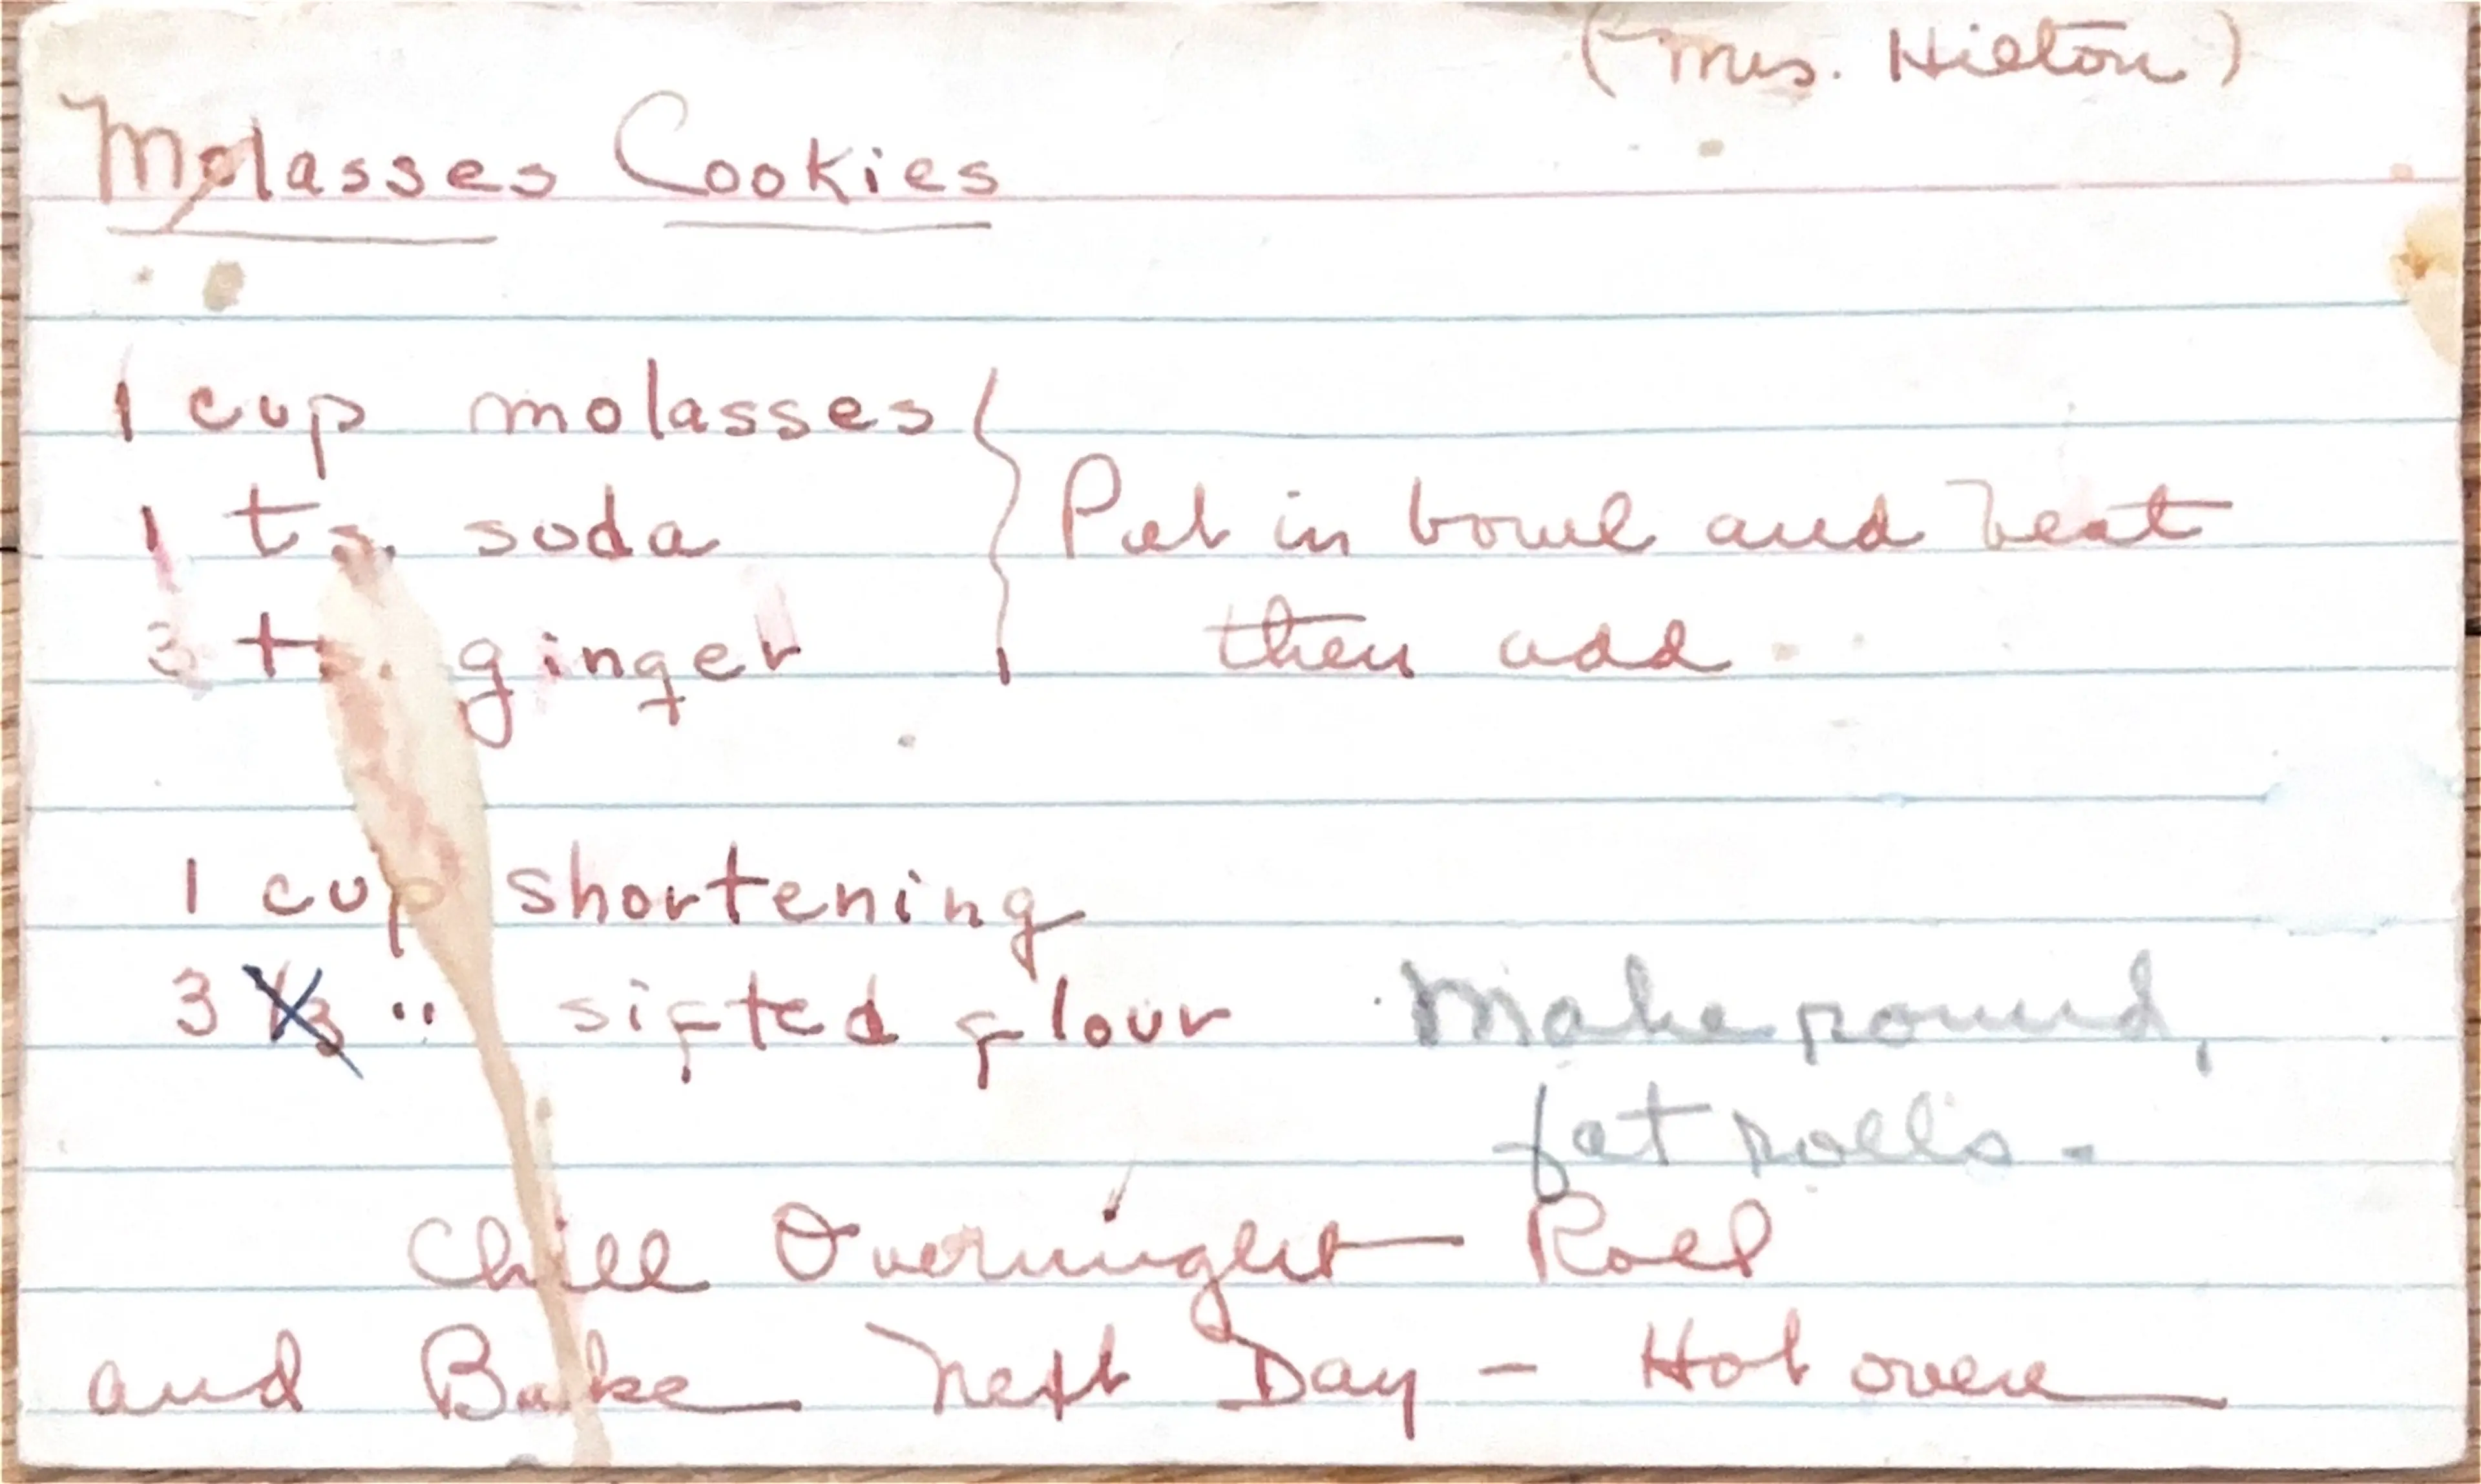 (Mrs. Hilton)
Molasses Cookies
1 cup molasses
1 ts. soda
3 ts. ginger
Put in bowl and beat
then add
1 cup shortening
3 1/3 " sifted flour
Make round,
fat rolls.
Chill Overnight — Roll
and Bake Next Day - Hot oven